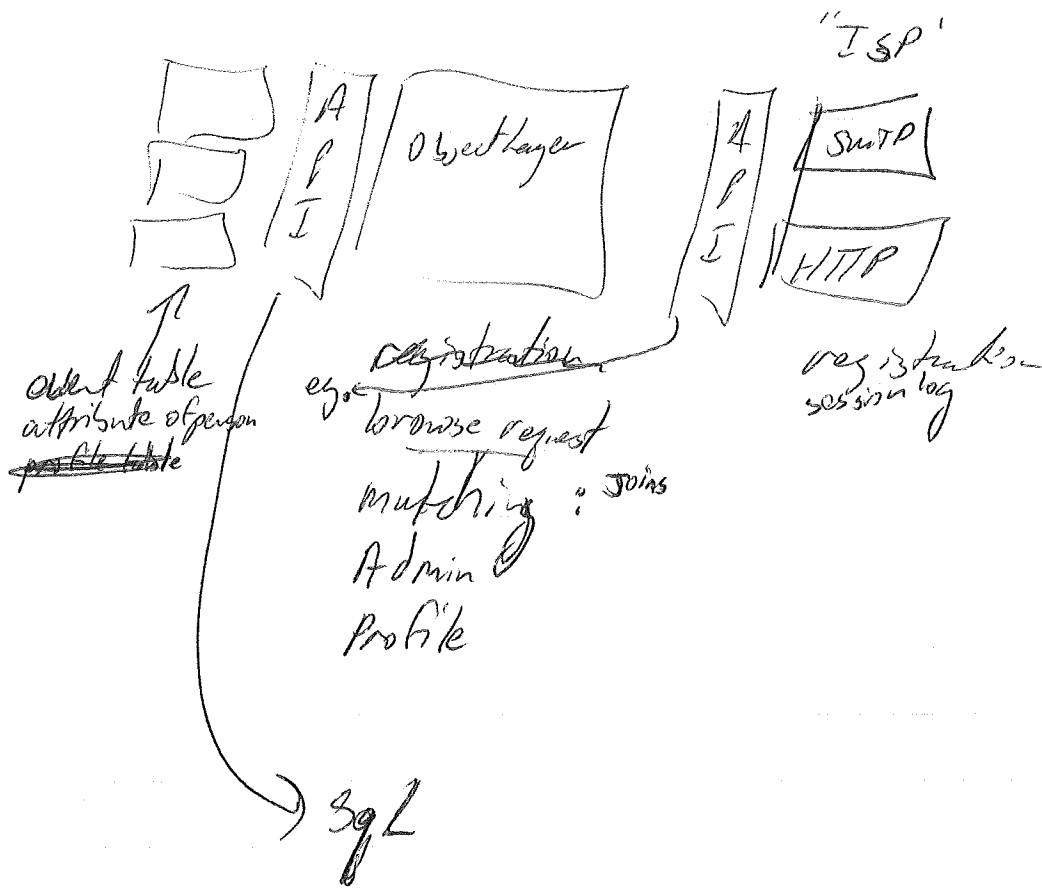 "ISP'
API
Object Layer
API
SMTP
HTTP
table
attribute of person
profile table
registration
eg.
browse request
matching : Joins
Admin
Profile
registration
session log
SqL